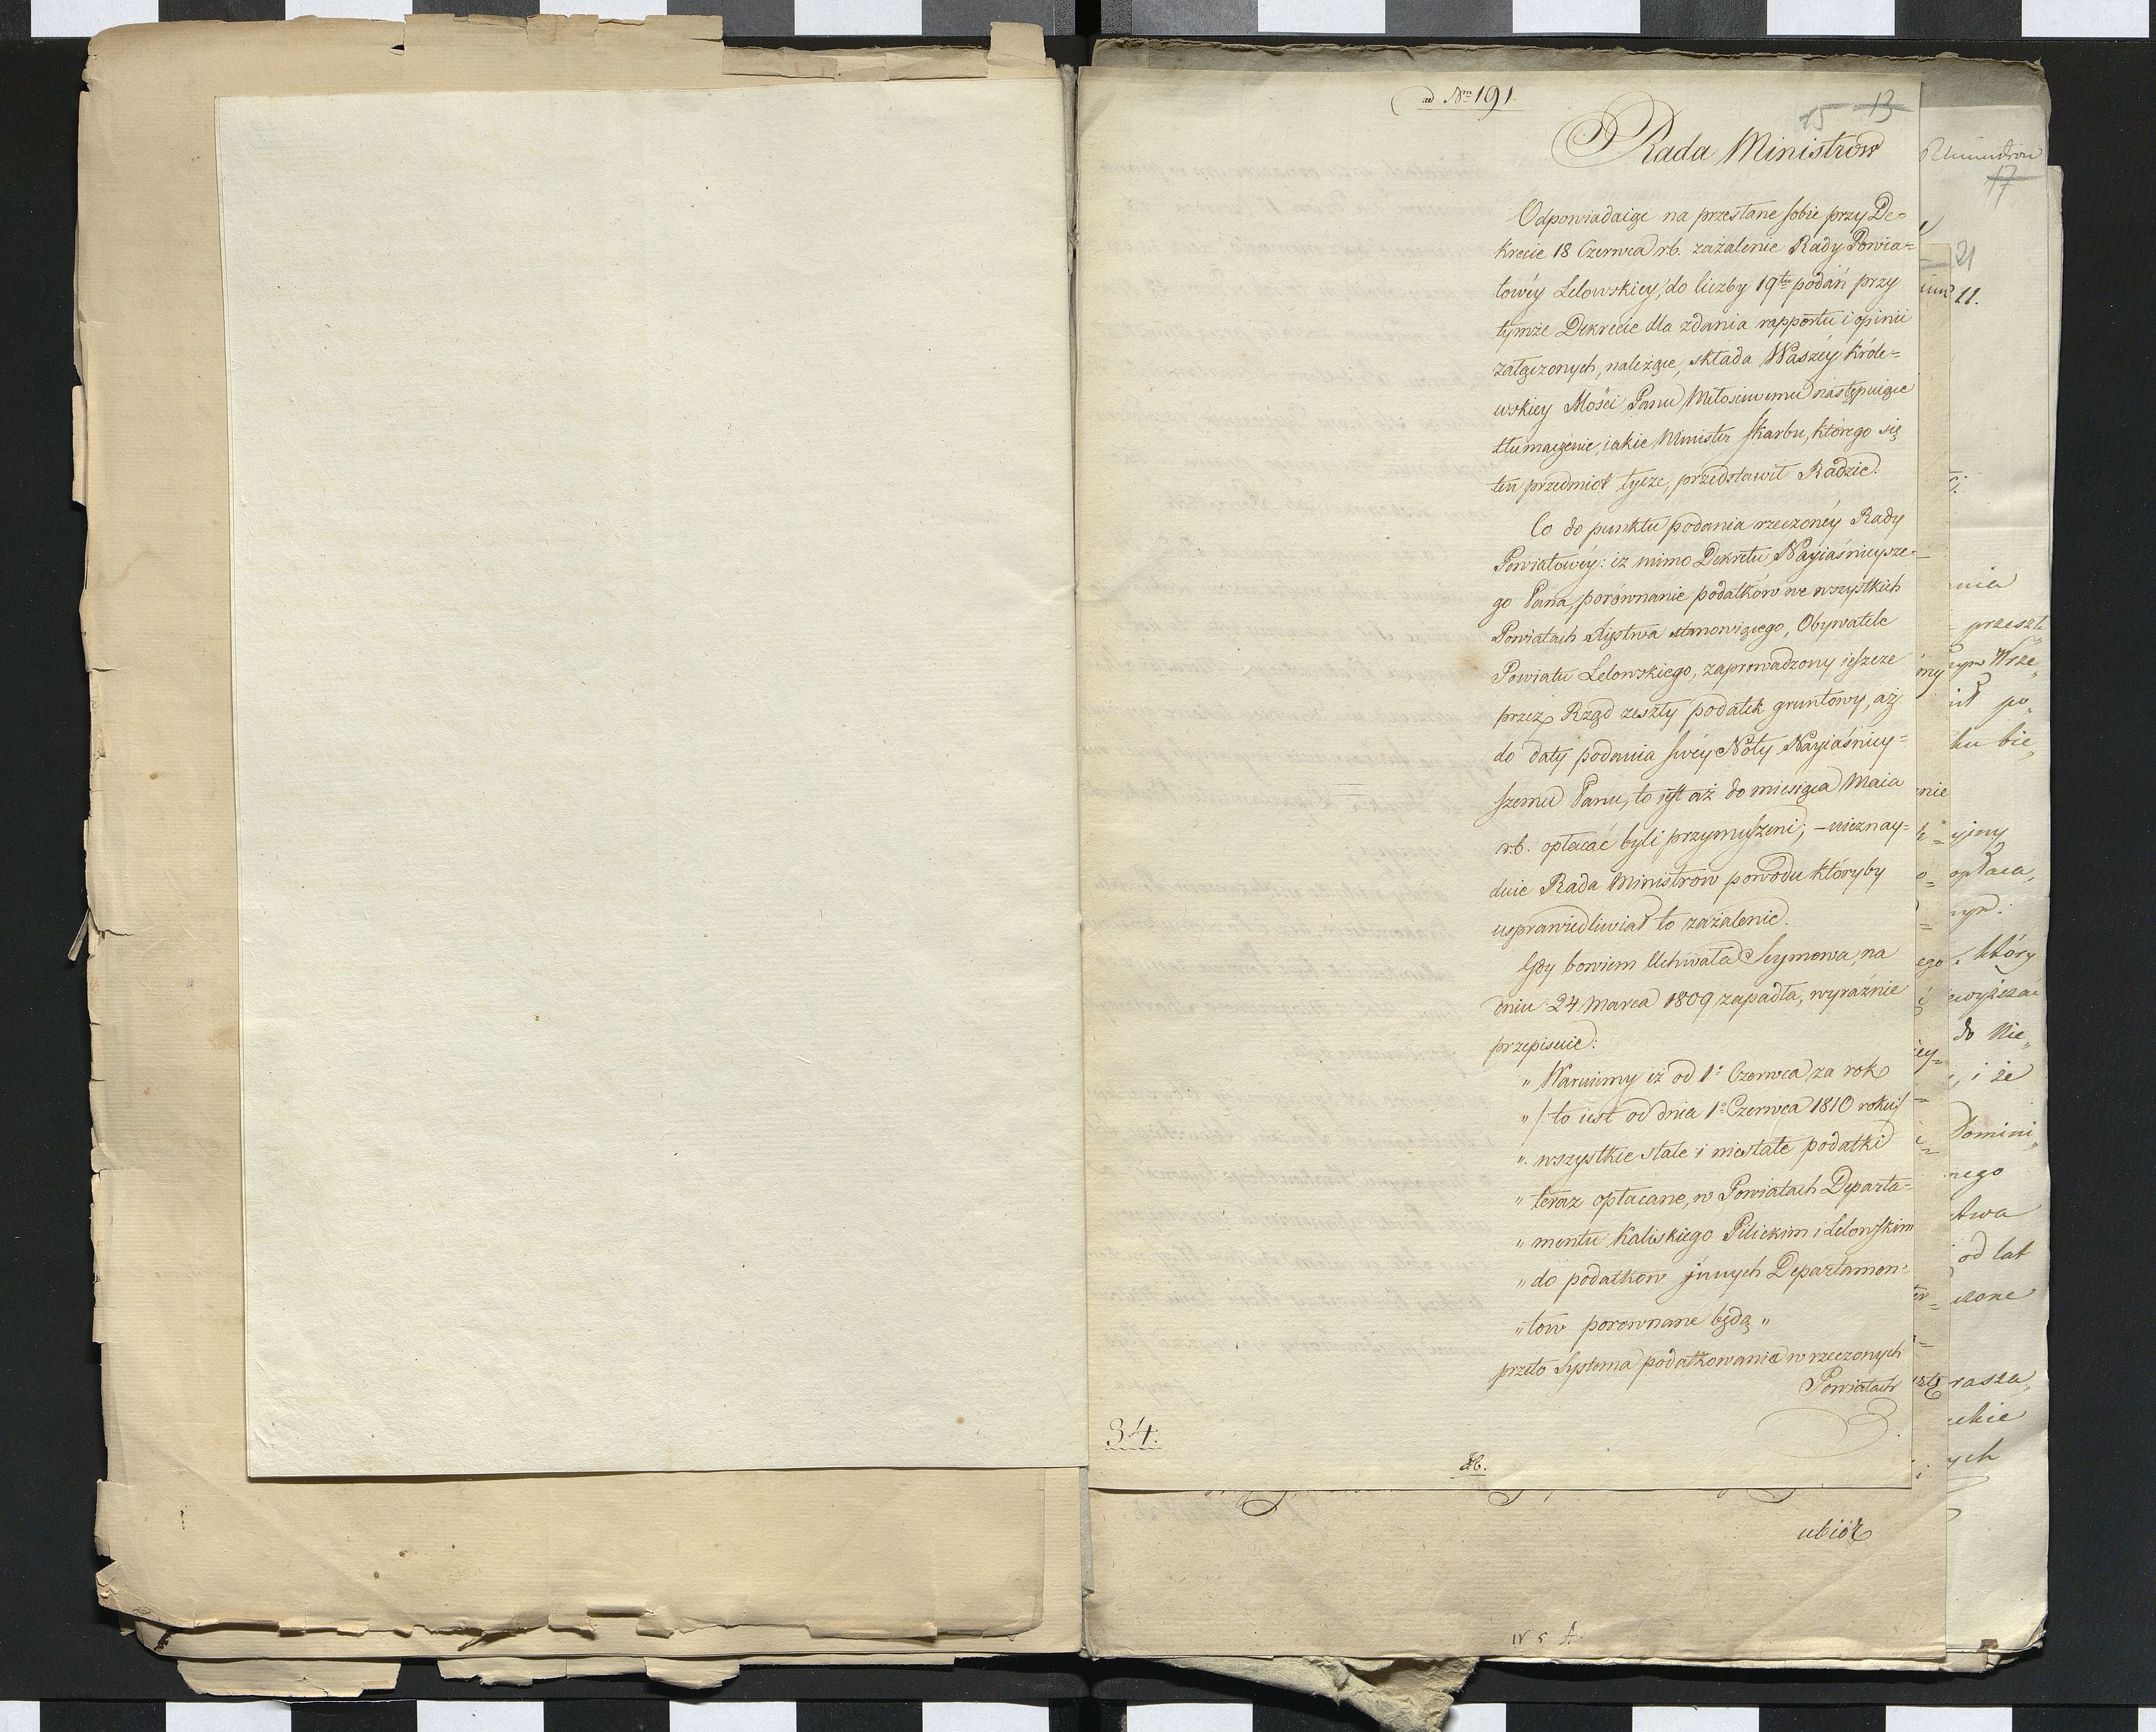 ad Nrm 191.
15 13
Rada Ministrow
Odpowiadaiąc na przesłane sobie przy De=
krecie 18 Czerwca r.b. zażalenie Rady Powia=
towéy Lelowskiey, do liczby 19tu podań przy
tymże Dekrecie dla zdania rapportu i opinii
załączonych, należące, składa Waszéy Króle=
wskiey Mości Panu Miłościwemu następuiące
tłumaczenie, iakie Minister Skarbu, którego się
ten przedmiot tycze, przedstawił Radzie.
Co do punktu podania rzeczonéy Rady
Powiatowéy: iż mimo Dekretu Nayiaśnieysze=
go Pana, porównanie podatków we wszystkich
Powiatach Xięstwa stanowiącego, Obywatele
Powiatu Lelowskiego, zaprowadzony ieszcze
przez Rząd zeszły podatek gruntowy, aż
do daty podania swéy Noty Nayiaśniey=
szemu Panu, to iest aż do miesiąca Maia
r.b. opłacać byli przymuszeni; – nieznay=
duie Rada Ministrów powodu któryby
usprawiedliwiał to zażalenie.
Gdy bowiem Uchwała Seymowa, na
dniu 24 Marca 1809 zapadła, wyraźnie
przepisuie:
„ Waruiemy iż od 1o Czerwca za rok
„ /: to iest od dnia 1o Czerwca 1810 roku :/
„ wszystkie stałe i niestałe podatki
„ teraz opłacane, w Powiatach Departa=
„ mentu Kaliskiego Pilickim i Lelowskim
„ do podatkow innych Departamen=
„ tow porownane będą „
przeto Systema podatkowania w rzeczonych
Powiatach
34.
ubiór
17
21
11.
nia
przeszł
my
po„
ku bie„
nie
opłaca„
ego
który
do Nie„
i że
Domini„
nego
od lat
zone
rasza„
ych